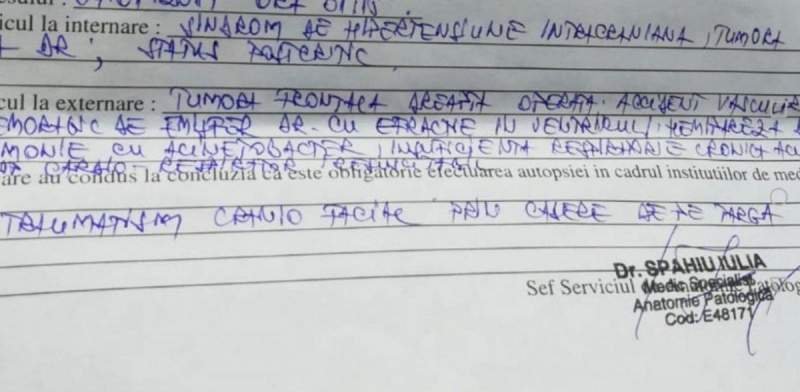 icul la internare : SINDROM DE HIPERTENSIUNE INTRACRANIANA, TUMORA
DR, STATUS POSTCRITIC
cul la externare : TUMORA FRONTALA DREAPTA OPERATA. ACCIDENT VASCULAR
EMORAGIC DE EMISFER DR. CU EFRACTIE IN VENTRICULI, HEMIPAREZA
MONIE CU ACINETOBACTER, INSUFICIENTA RESPIRATORIE CRONICA ACU
CARDIO-RESPIRATOR
are au condus la concluzia ca este obligatorie efectuarea autopsiei in cadrul institutiilor de med
TRAUMATISM CRANIO FACIAL PRIN CADERE DE PE TARGA
Dr. SPAHIU IULIA
Sef Serviciul
Medic Specialist
Anatomie Patologica
Cod: E48171